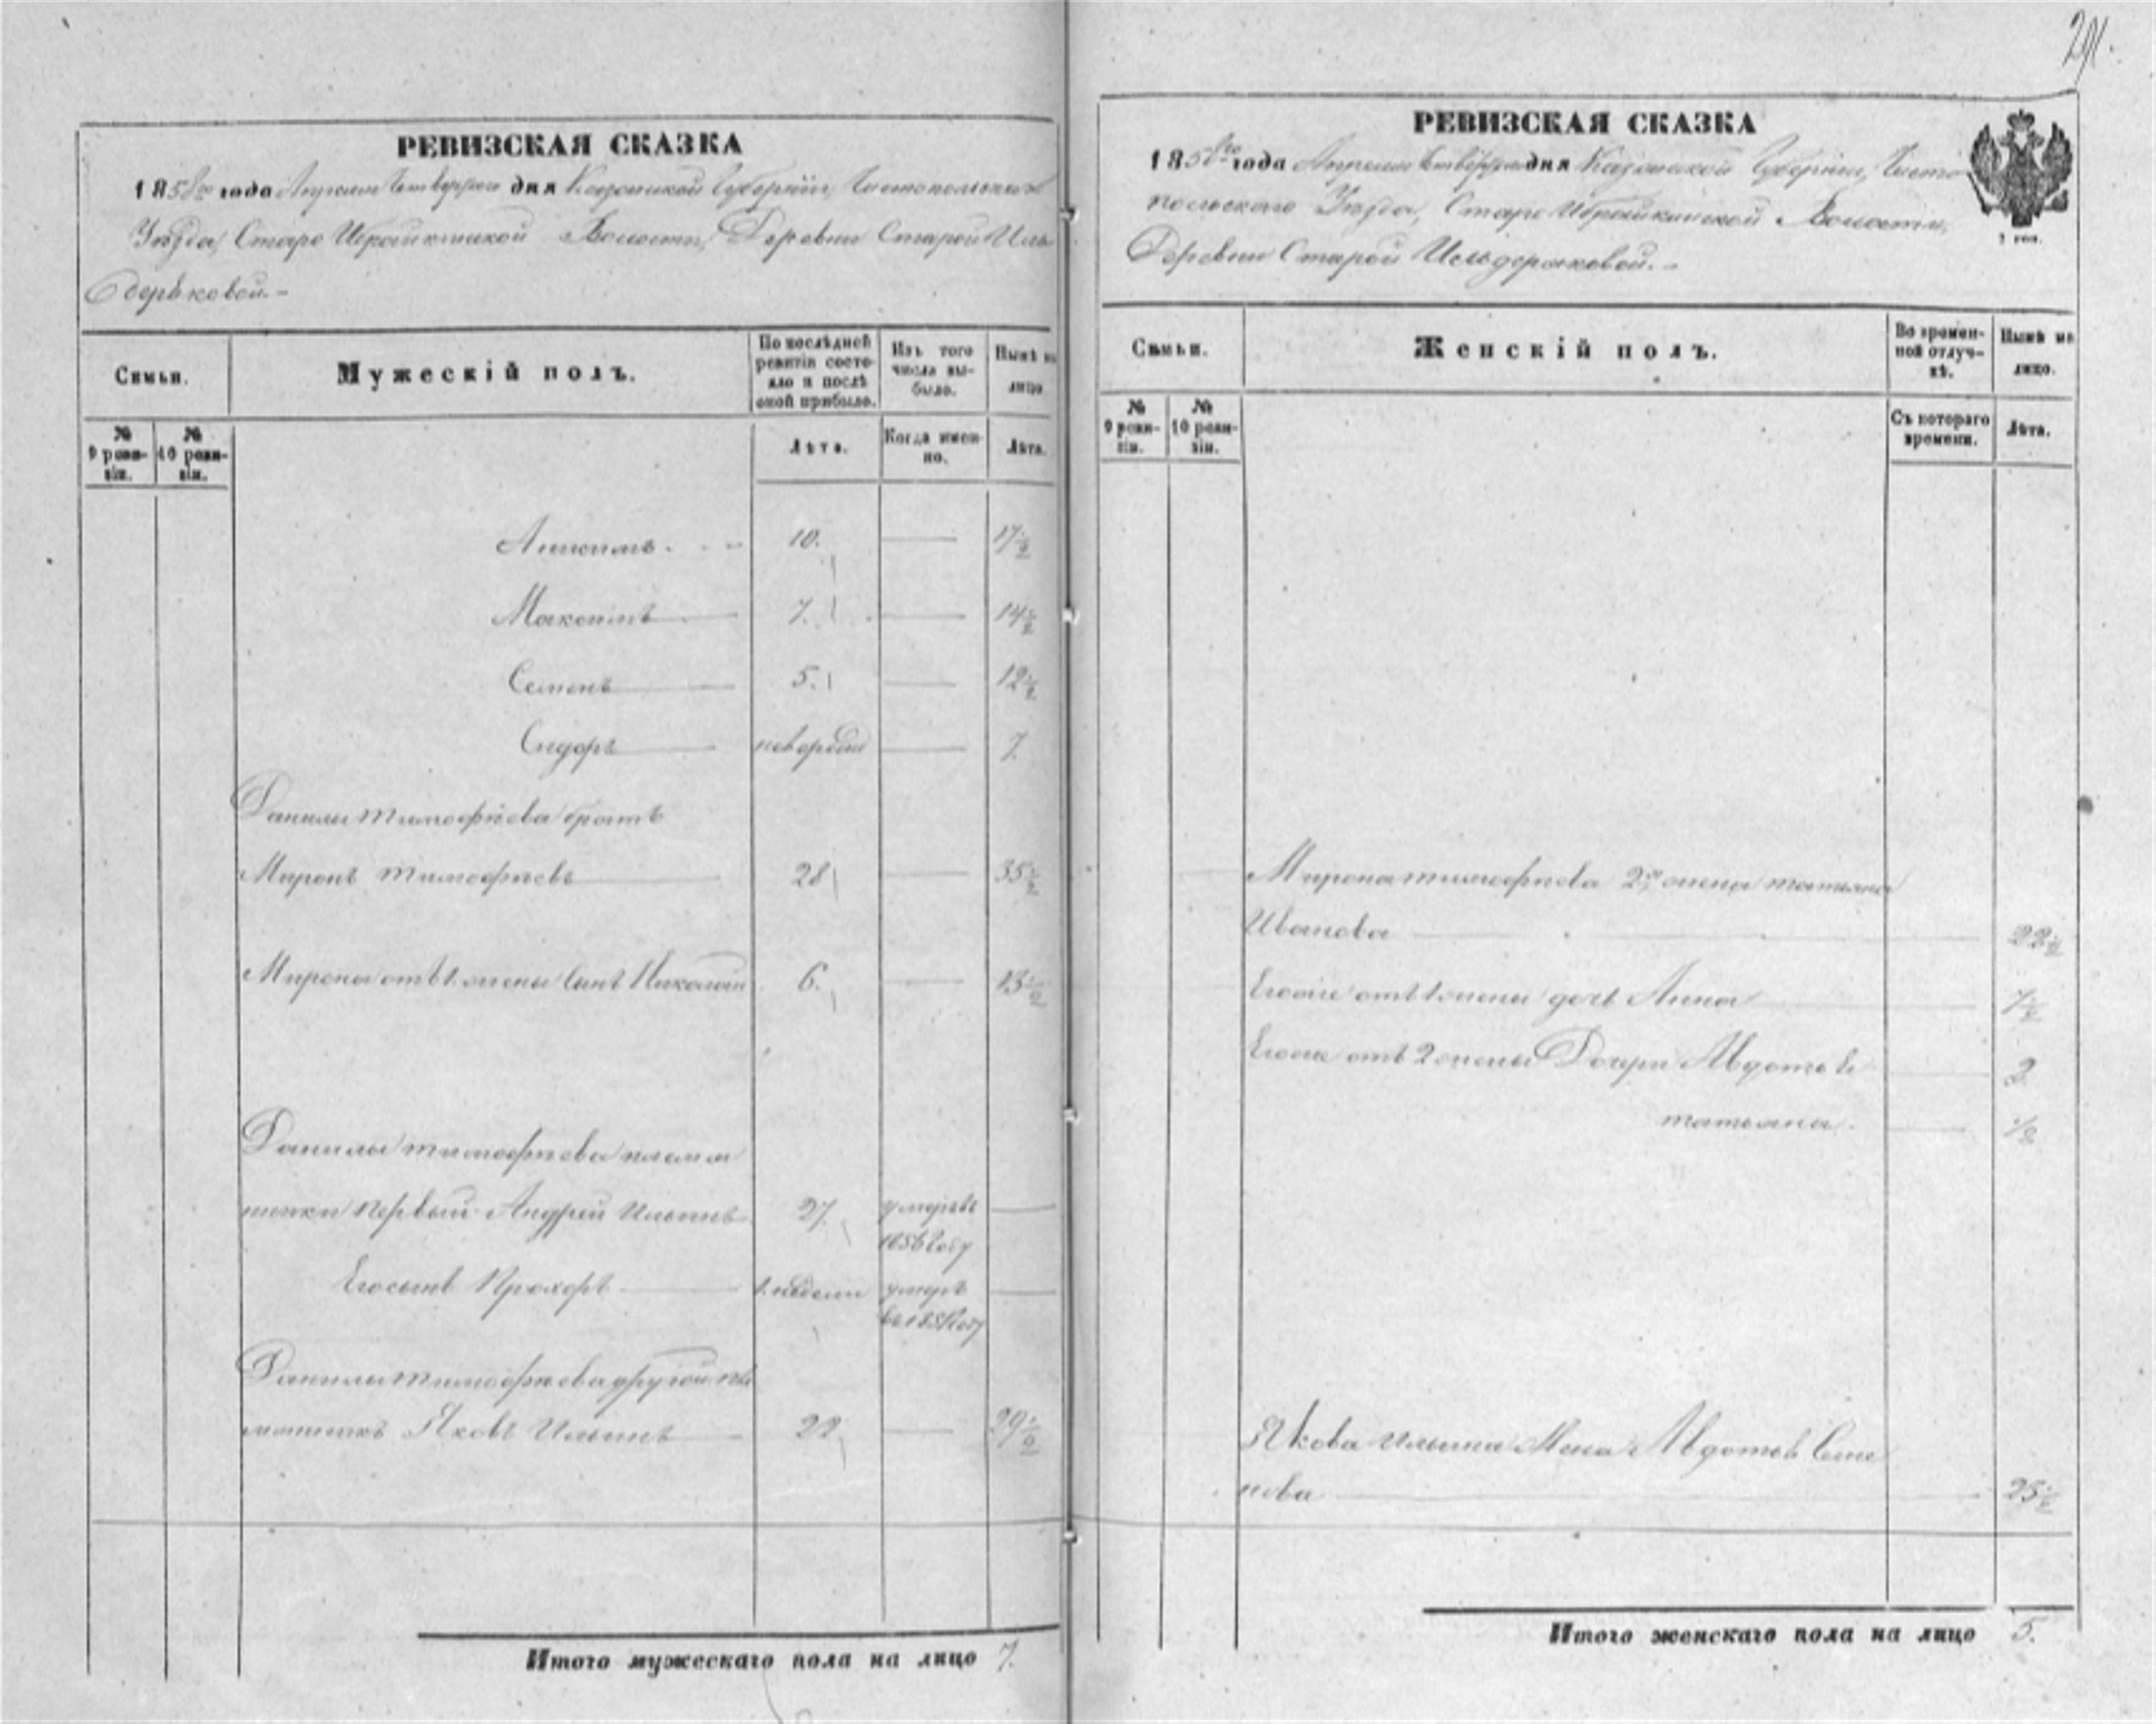 291.
РЕВИЗСКАЯ СКАЗКА
1858го года Апреля Четвертаго дня Казанской Губернии, Чистопольскаго
Уѣзда, Старо Ибрайкинской Волости, Деревни Старой Иль
деряковой.-
Симьи.
Мужескій полъ.
По послѣдней ревизіи состояло и послѣ оной прибыло.
Изъ того числа выбыло.
Нынѣ на лицо
№ 9 ревизіи.
№ 10 ревизіи.
Лѣта.
Когда именно.
Лѣта.
10. 17½
Максимъ 7. 14½
Семенъ 5. 12½
Сидоръ новорожд 7
Данилы тимофѣева братъ
Миронъ тимофѣевъ 28 35½
Мирона отъ 1 жены сынъ Николай 6. 13½
Данилы тимофѣева племян
ники первый Андрей Ильинъ 27. умеръ въ
1856 году
Его сынъ Прохоръ недели умеръ
Данилы тимофѣева другой пле
мянникъ Яковъ Ильинъ 22 29½
Итого мужескаго пола на лицо 7.
РЕВИЗСКАЯ СКАЗКА
1858го года Апреля Четвертаго дня Казанской Губернии, Чисто
польскаго Уѣзда, Старо Ибрайкинской Волости,
Деревни Старой Ильдеряковой.-
Симьи.
Женскій полъ.
Во временной отлучкѣ.
Нынѣ на лицо.
№ 9 ревизіи.
№ 10 ревизіи.
Съ котораго времени.
Лѣта.
Мирона тимофѣева 2я жена татьяна
Иванова 22½
Егоже отъ 1 жены дочь Анна 7½
Егоже отъ 2 жены Дочери Авдотья 2
татьяна. ½
Якова Ильина Жена Авдотья Семе
нова 25½
Итого женскаго пола на лицо 5.